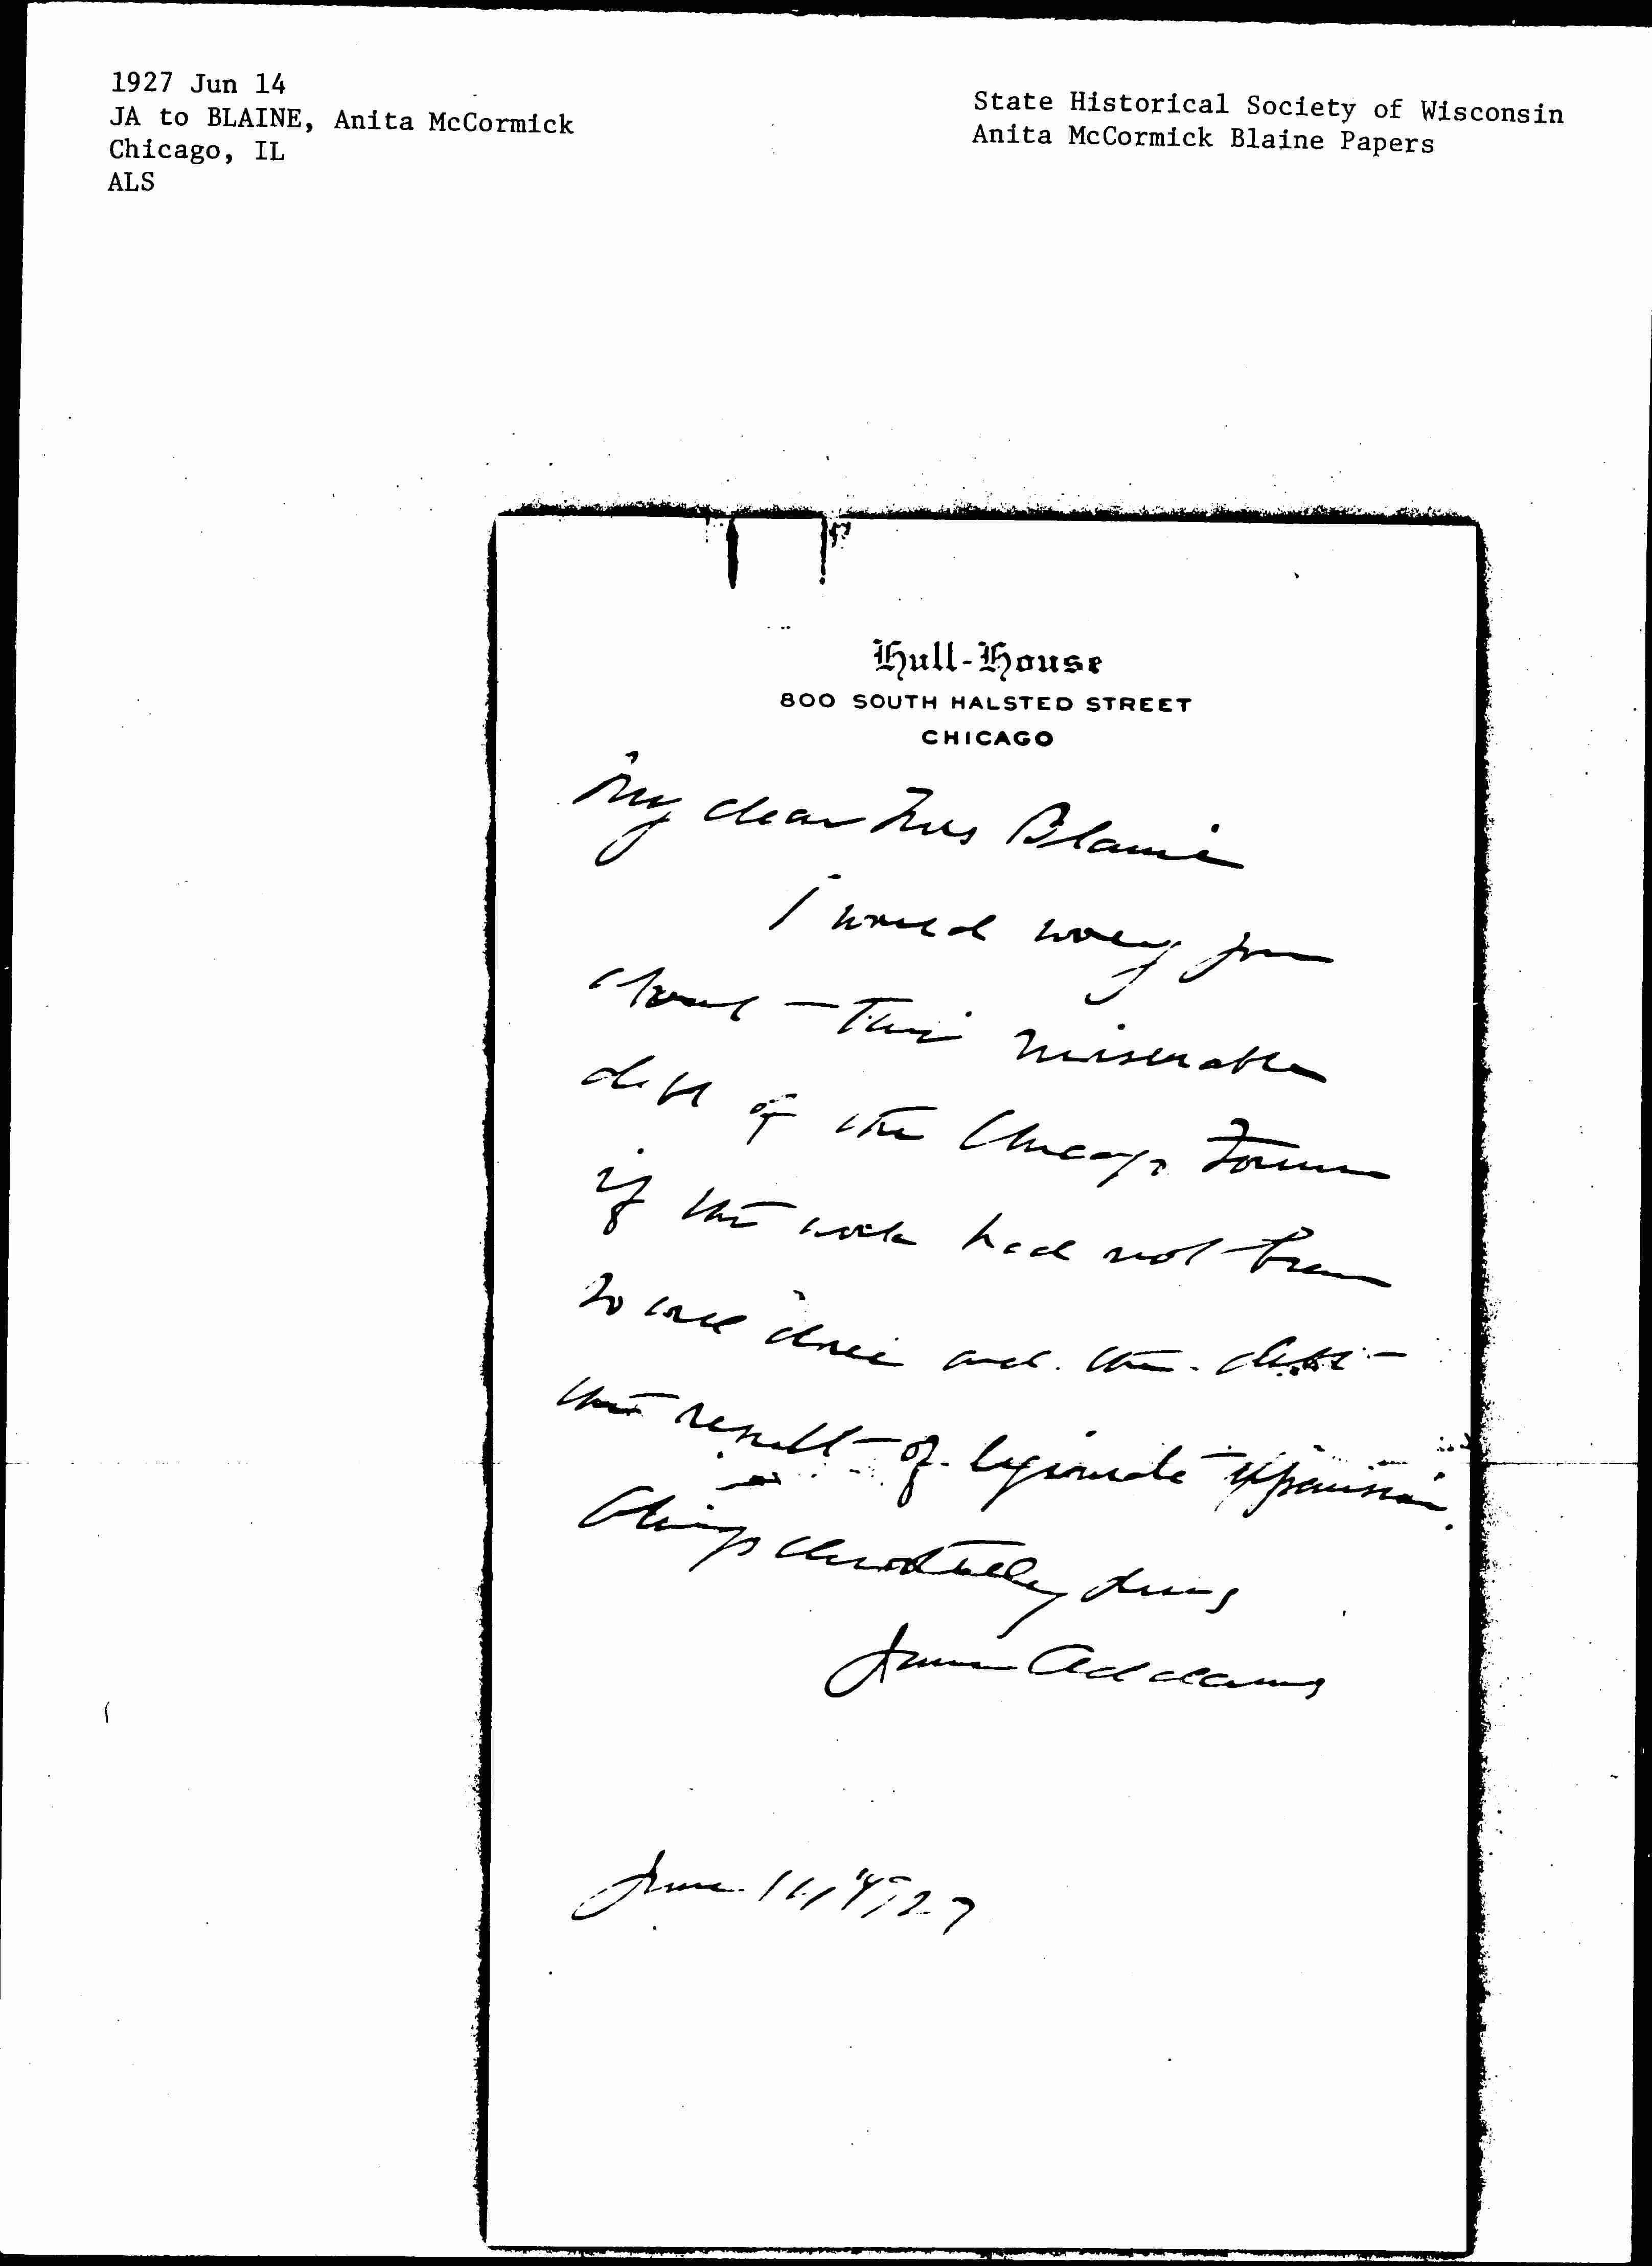 1927 Jun 14
JA to BLAINE, Anita McCormick
Chicago, IL
ALS
State Historical Society of Wisconsin
Anita McCormick Blaine Papers
Hull-House
800 SOUTH HALSTED STREET
CHICAGO
My dear Mrs Blaine
I would you
about this miserable
debt of the Chicago Forum
if the work had not been
so well done and the debt
the result of expansion.
Always devotedly yours
Jane Addams
June 14, 1927